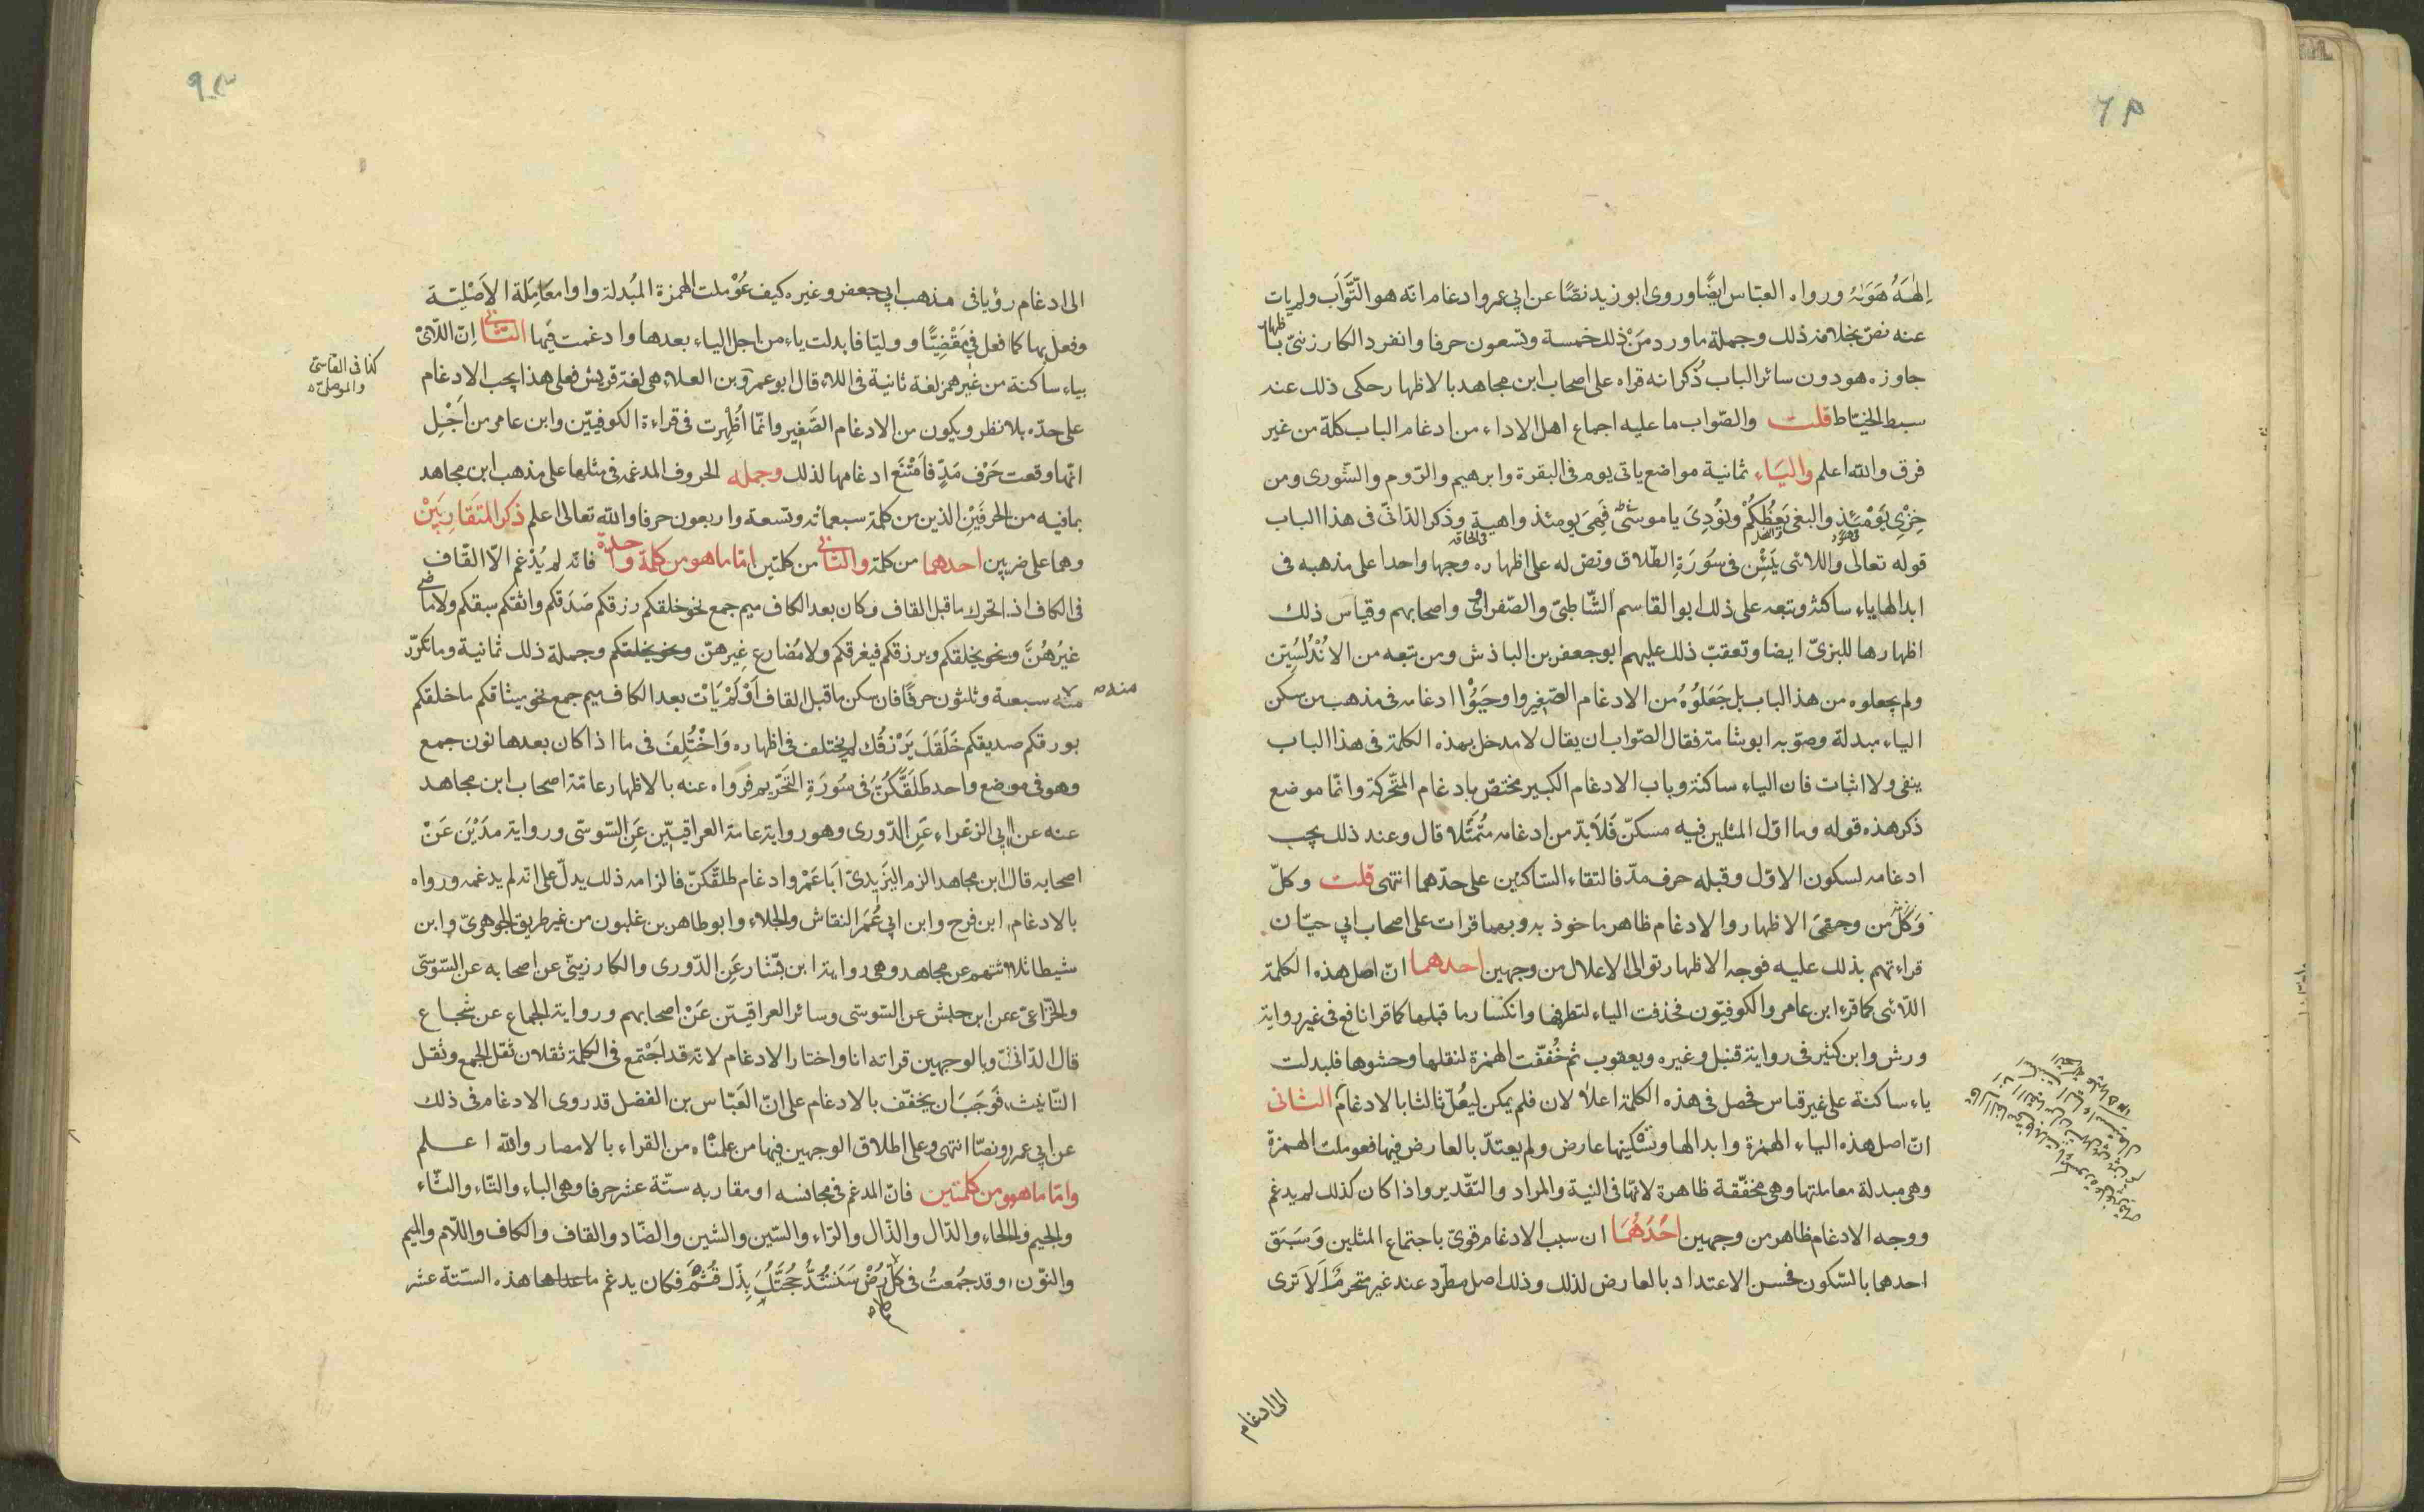 إلهه هويه ورواه العبّاس ايضًا وروى ابو زيد نصّا عن ابي عمرو ادغام انه هو التّواب ولم يات
عنه نصّ بخلاف ذلك وجملة ما ورد من ذلك خمسة وتسعون حرفا وانفرد الكارزينيّ باظهار
جاوزه هو دون سائر الباب ذكر انه قراه على اصحاب ابن مجاهد بالاظهار حكى ذلك عنه
سبط الخيّاط قلت والصّواب ما عليه اجماع اهل الاداء من ادغام الباب كلّه من غير
فرق والله اعلم والياء ثمانية مواضع ياتى يوم فى البقرة وابرهيم والرّوم والشّورى ومن
خزي يومئذ والبغى يعظكم ونودى يا موسى فهى يومئذ واهية وذكر الدّانىّ فى هذا الباب
قوله تعالى واللائى يئسن فى سورة الطّلاق ونصّ له على اظهاره وجها واحدا على مذهبه فى
ابدالها ياء ساكنة وتبعه على ذلك ابو القاسم الشّاطبىّ والصّفراوى واصحابهم وقياس ذلك
اظهارها للبزىّ ايضا وتعقبّ ذلك عليهم ابو جعفر بن الباذش ومن تبعه من الاندلسيّين
ولم يجعلوه من هذا الباب بل جعلوه من الادغام الصّغير واوجبوا ادغامه فى مذهب من سكن
الياء مبدلة وصوّبه ابو شامة فقال الصّواب ان يقال لا مدخل بهذه الكلمة فى هذا الباب
بنفى ولا اثبات فان الياء ساكنة وباب الادغام الكبير مختصّ بادغام المتحّركة وانّما موضع
ذكر هذه قوله وما اوّل المثلين فيه مسكّن فلا بدّ من ادغامه متمثّلا قال وعند ذلك يجب
ادغامه لسكون الاوّل وقبله حرف مدّ فالتقاء السّاكنين على حدّهما انتهى قلت وكلّ
وكلّ من وجهى الاظهار والادغام ظاهر ماخوذ به وبهما قرات على اصحاب ابي حيّان
قراءتهم بذلك عليه فوجه الاظهار توالى الاعلال من وجهين احدهما انّ اصل هذه الكلمة
اللّائى كما قرء ابن عامر والكوفيّون فحذفت الياء لتطرفها وانكسار ما قبلها كما قرا نافع فى غير رواية
ورش وابن كثير فى رواية قنبل وغيره ويعقوب ثم خففّت الهمزة لثقلها وحشوها فابدلت
ياء ساكنة على غير قياس فحصل فى هذه الكلمة اعلالان فلم يكن ليعلّ ثالثا بالادغام الثانى
انّ اصل هذه الياء الهمزة وابدالها وتسكينها عارض ولم يعتدّ بالعارض فيها فعوملت الهمزة
وهى مبدلة معاملتها وهى مخفّفة ظاهرة لانّها فى النية والمراد والتّقدير واذا كان كذلك لم يدغم
ووجه الادغام ظاهر من وجهين احدهما ان سبب الادغام قوىّ باجتماع المثلين وسبق
احدهما بالسّكون فحسن الاعتداد بالعارض لذلك وذلك اصل مطّرد عند غير متحرم الا ترى
الى ادغام
الى ادغام رؤيا فى مذهب ابي جعفر وغيره كيف عوملت الهمزة المبدلة واوا معاملة الاصليّة
وفعل بها كما فعل في مقضيّا وولِيّا فابدلت ياء من اجل الياء بعدها وادغمت فيها الثّانى انّ اللّائ
بياء ساكنة من غير همز لغة ثانية فى اللاء قال ابو عمرو بن العلاء هى لغة قريش فعلى هذا يجب الادغام
كذا فى القاسى
والموصل
على حدّه بلا نظر ويكون من الادغام الصّغير وانّما اُظهرت فى قراءة الكوفيّين وابن عامر من اجل
انّها وقعت حرف مدّ فامتنع ادغامها لذلك وجملة الحروف المدغمه فى مثلها على مذهب ابن مجاهد
بما فيه من الحرفين الذين من كلمة سبعمائة وتسعة واربعون حرفا والله تعالى اعلم ذكر المتقاربين
وهما على ضربين احدهما من كلمة والثّانى من كلمتين امّا ما هو من كلمة واحدة فانه لم يُدغم الّا القاف
فى الكاف اذا تحرك ما قبل القاف وكان بعد الكاف ميم جمع نحو خلقكم رزقكم صدقكم واثقكم سبقكم ولا ماضى
غيرهنّ ونحو يخلقكم ويرزقكم فيغرقكم ولا مضارع غيرهنّ ونحو يخلقكم وجملة ذلك ثمانية وما تكرّر
منه سبعة وثلثون حرفا فان سكن ما قبل القاف او لم يات بعد الكاف ميم جمع نحو ميثاقكم ما خلقكم
بورقكم صديقكم خلقك يرزقك لم يختلف فى اظهاره واختلف فى ما اذا كان بعدها نون جمع
وهو فى موضع واحد طلقكنّ فى سورة التحريم فرواه عنه بالاظهار عامّة اصحاب ابن مجاهد
عنه عن ابي الزعراء عن الدّورى وهو رواية عامة العراقيّين عن السّوسّى ورواية مدين عن
اصحابه قال ابن مجاهد الزم اليزيدىّ ابا عمرو ادغام طلقّكنّ فالزامه ذلك يدلّ على انّه لم يدغمه ورواه
بالادغام ابن فرح وابن ابي عمر النقاش والجلاء وابو طاهر بن غلبون من غير طريق الجوهرىّ وابن
شيطا ثلاثتهم عن مجاهد وهى رواية ابن بشّار عن الدّورى والكارزينىّ عن اصحابه عن السّوسّى
والخزاعىّ عن ابن حبش عن السّوسى وسائر العراقيّين عن اصحابهم ورواية الجماع عن شجاع
قال الدّانىّ وبالوجهين قراته انا واختار الادغام لانه قد اجتمع فى الكلمة ثقلان ثقل الجمع وثقل
التّانيث فوجب ان يخفّف بالادغام على انّ العبّاس بن الفضل قد روى الادغام فى ذلك
عن ابي عمرو نصّا انتهى وعلى اطلاق الوجهين فيها من علمناه من القراء بالامصار والله اعلم
وامّا ما هو من كلمتين فانّ المدغم فى مجانسه او مقاربه ستّة عشر حرفا وهى الباء والتّاء والثّاء
والجيم والحاء والدّال والذّال والرّاء والسّين والشين والضّاد والقاف والكاف واللّام والميم
والنّون وقد جُمعت فى كلم رض سنشدّ حجّتك بذلّ قثم فكان يدغم ما عداها هذه السّتة عشر